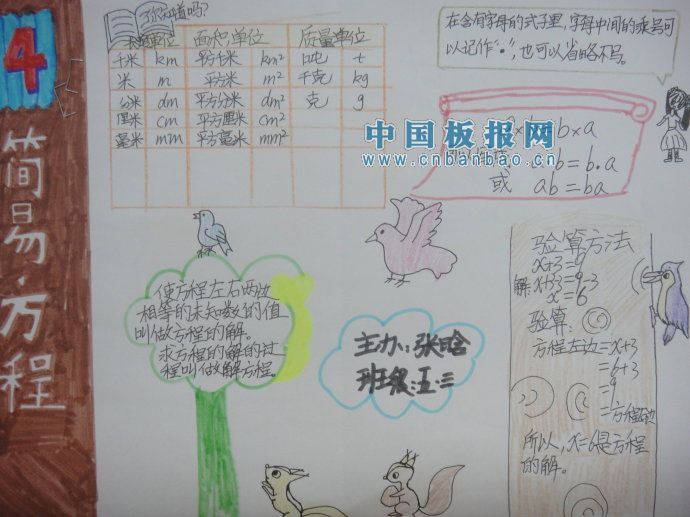 4
简易方程
你知道吗?
长度单位 面积单位 质量单位
千米 km 平方千米 km² 吨 t
米 m 平方米 m² 千克 kg
分米 dm 平方分米 dm² 克 g
厘米 cm 平方厘米 cm²
毫米 mm 平方毫米 mm²
在含有字母的式子里,字母中间的乘号可
以记作“•”,也可以省略不写。
b×a
b=b·a
或 ab=ba
中国板报网
www.cnbanbao.cn
使方程左右两边
相等的未知数的值
叫做方程的解。
求方程的解的过
程叫做解方程。
主办:张晗
班级:五·三
验算方法
x+3=9
解x+3=9-3
x=6
验算:
方程左边=x+3
=6+3
=9
=方程右边
所以,x=6是方程
的解。